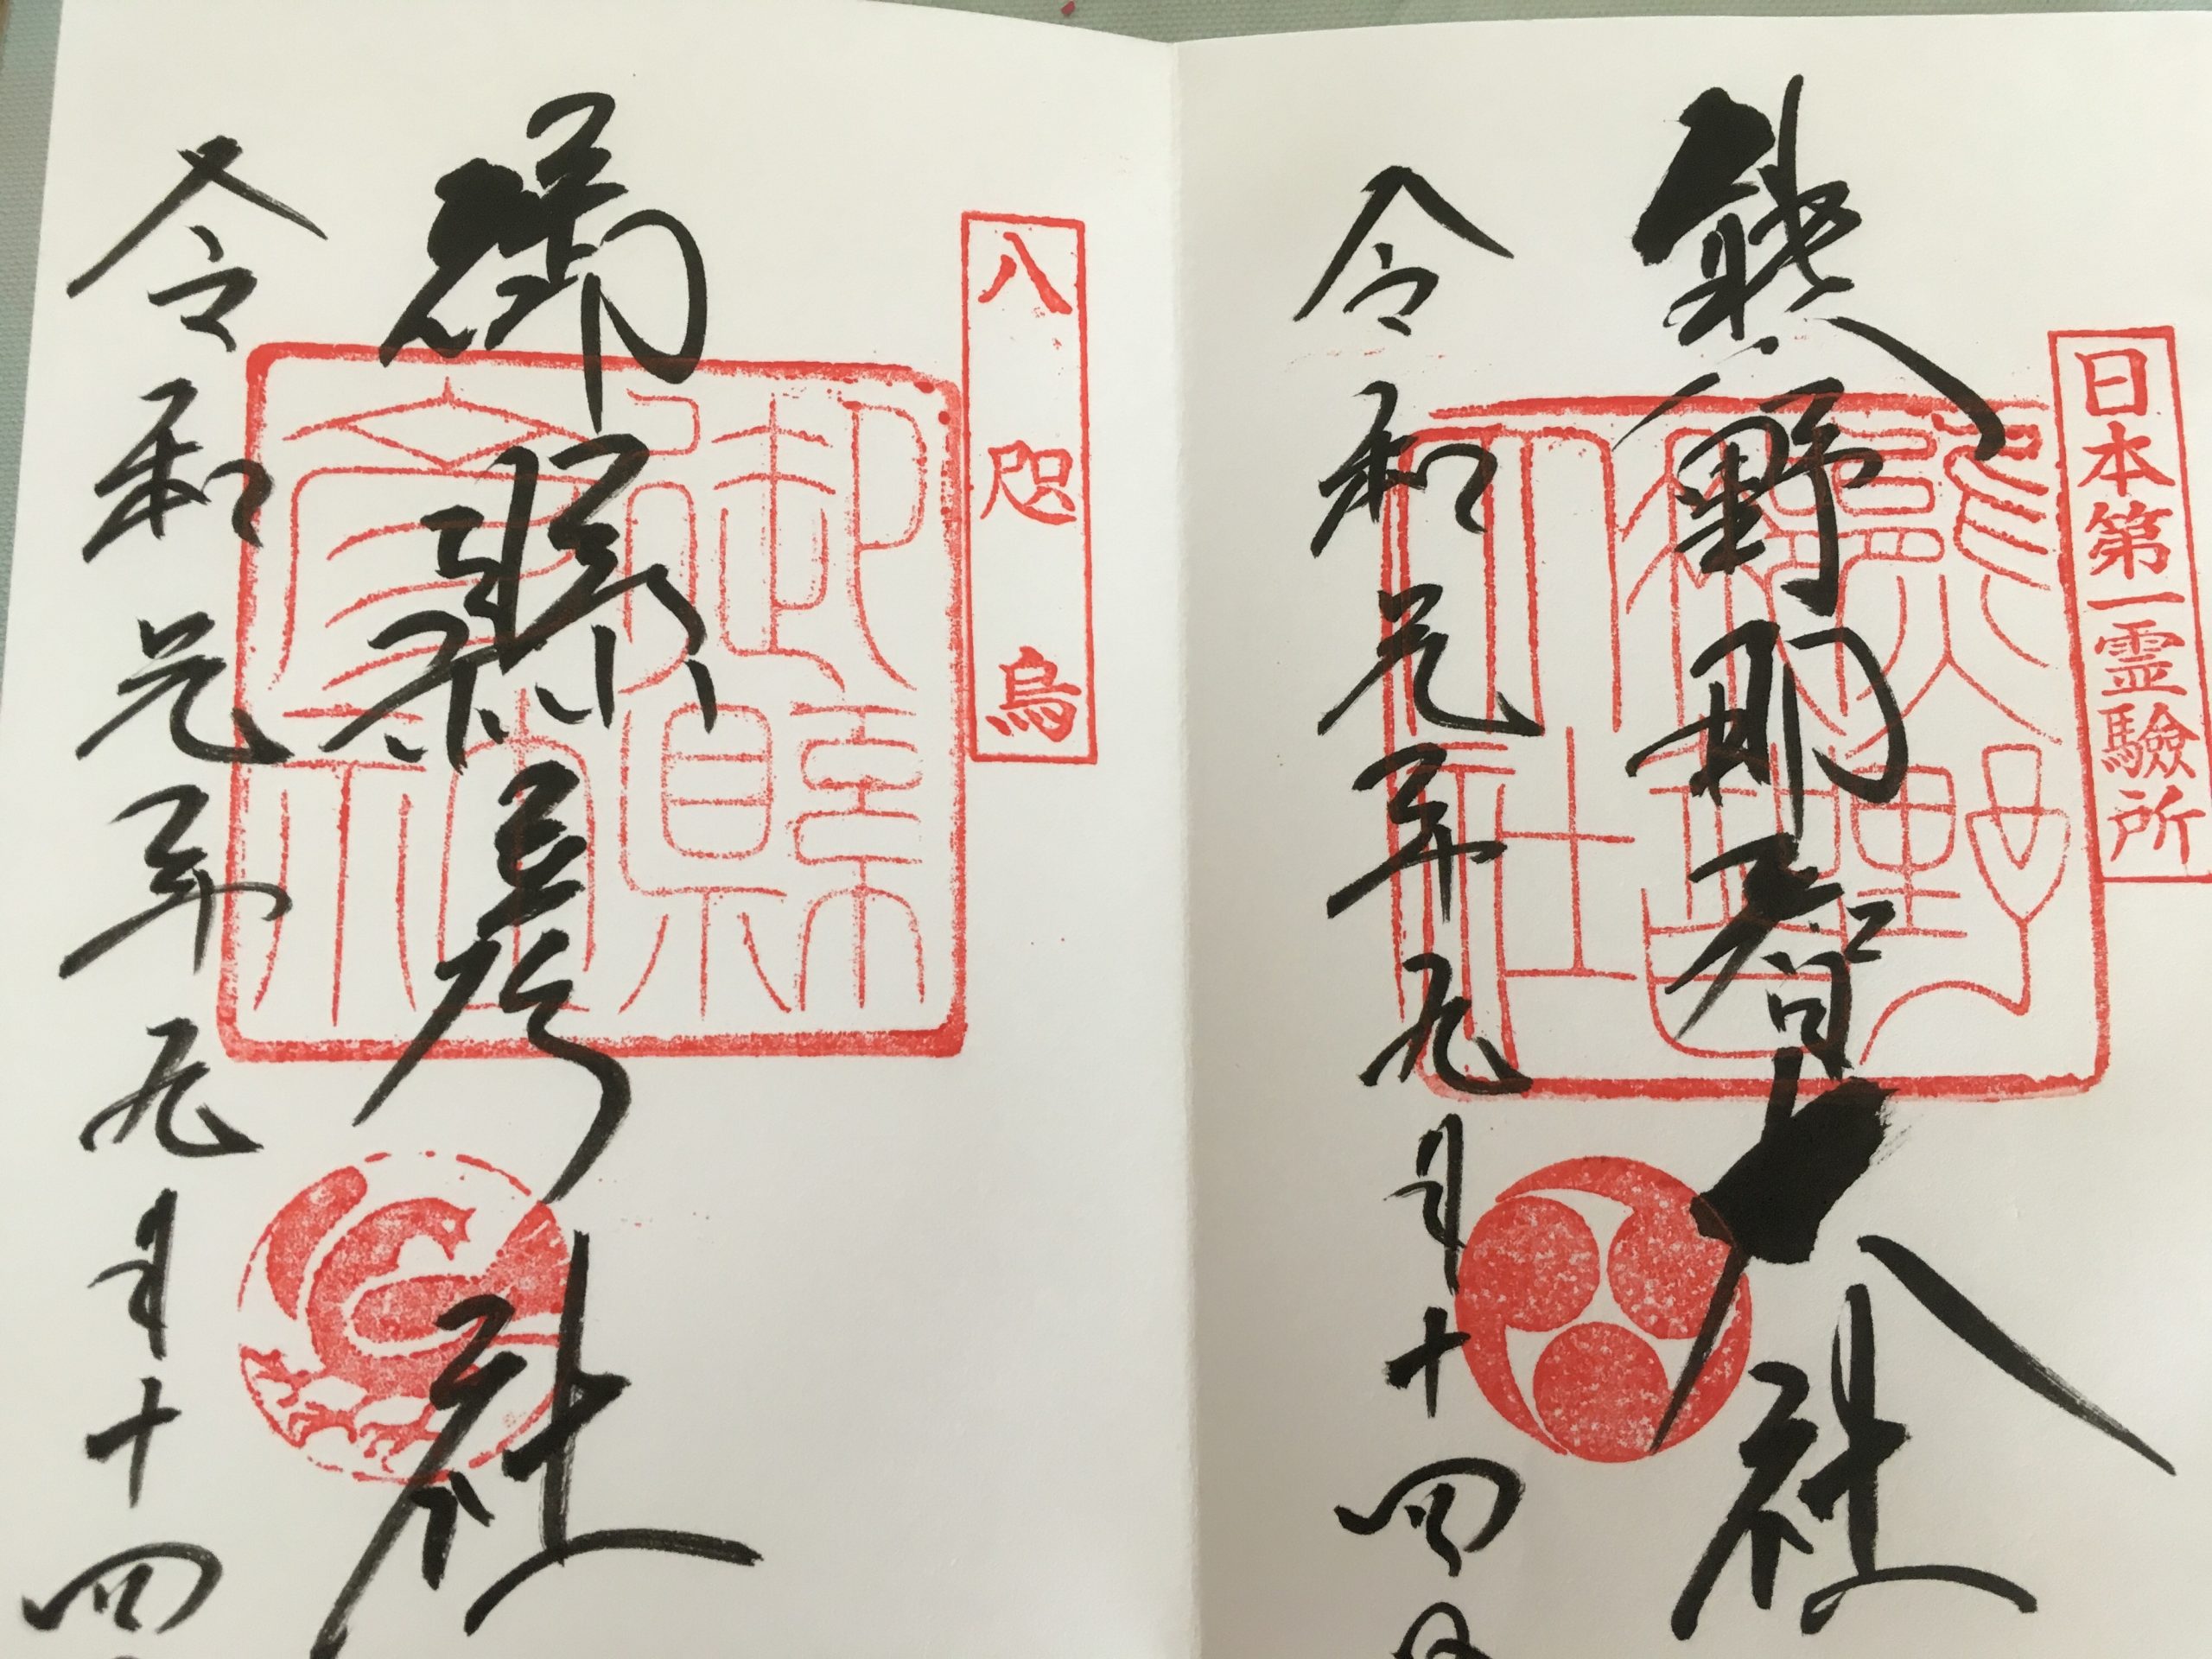 日本第一霊驗所
熊野那智大社
熊野
那智
大社
令和元年九月十四日
八咫烏
御縣彦社
御縣
彦社
令和元年九月十四